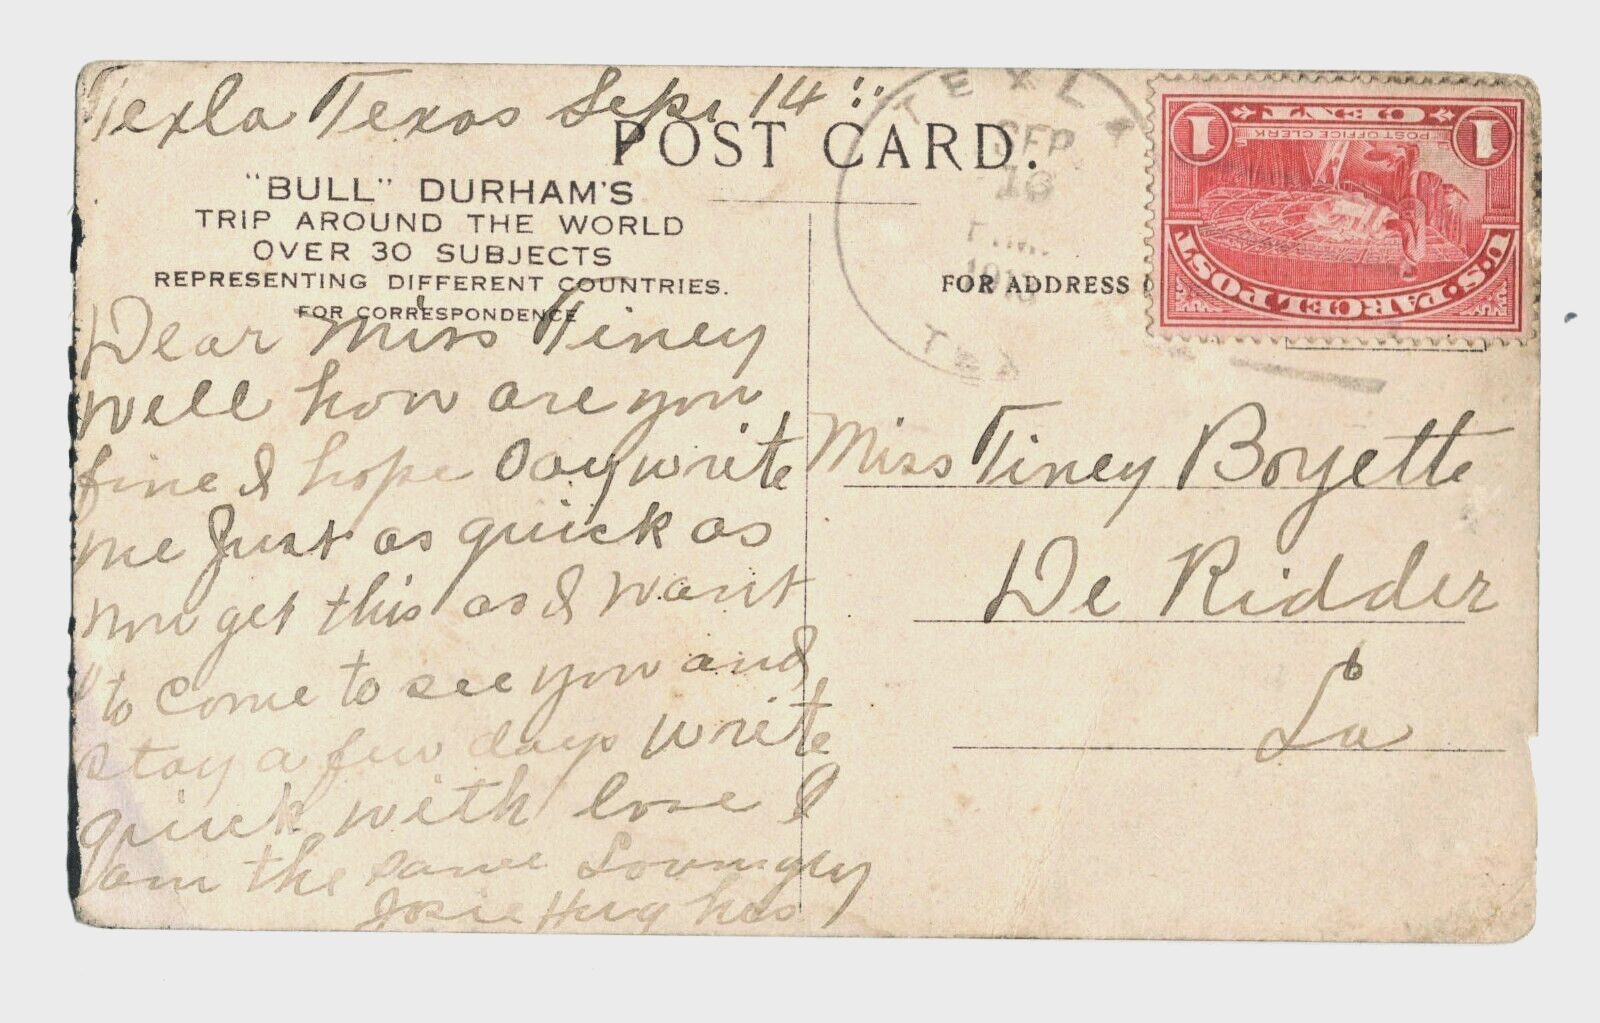 Texla Texas Sept 14"
POST CARD.
"BULL" DURHAM'S
TRIP AROUND THE WORLD
OVER 30 SUBJECTS
REPRESENTING DIFFERENT COUNTRIES.
FOR CORRESPONDENCE
Dear Miss Tiney
well how are you
fine I hope Say write
me Just as quick as
you get this as I want
to come to see you and
stay a few days write
quick with love I
am the same Lovingly
Josie Hughes
TEXLA
SEP
P.M.
TEX
FOR ADDRESS
1 CENT 1
POST OFFICE CLERK
U.S. PARCEL POST
Miss Tiney Boyette
De Ridder
La